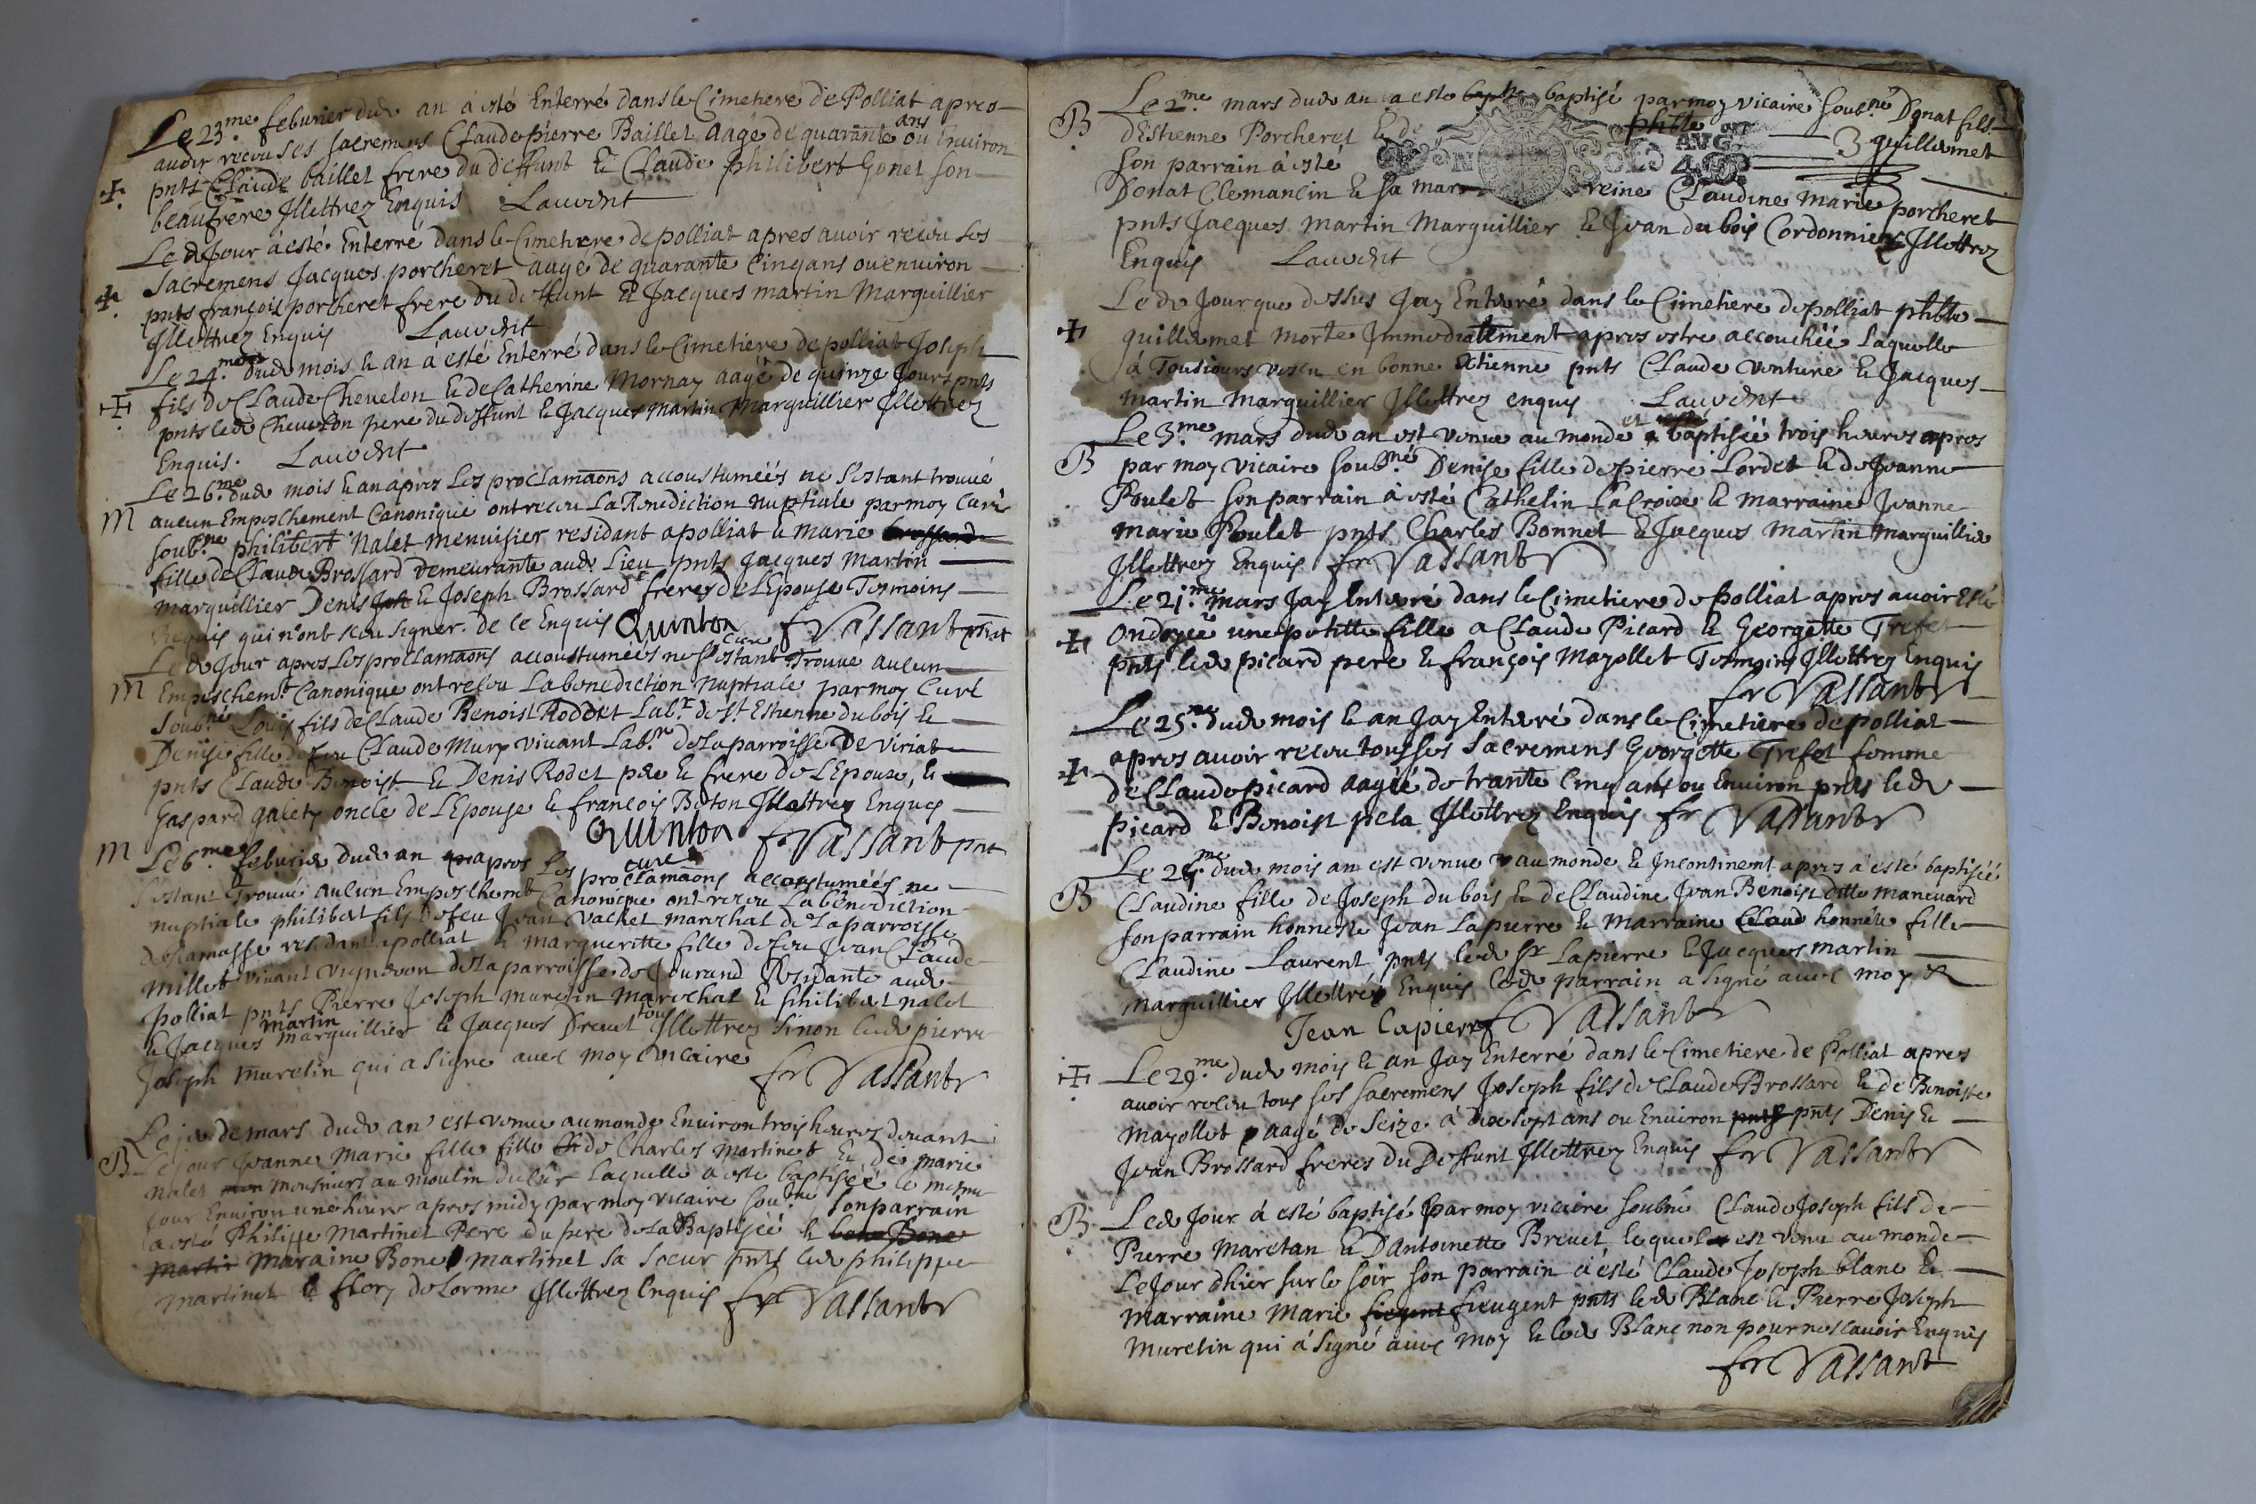 Le 23.me febvrier dud an a esté Enterré dans le Cimetiere de Polliat apres
avoir recou ses sacremens Claude pierre Baillet aagé de quarante ans ou Environ
pnts Claude baillet frere du deffunt & Claude philibert Gonet son
beaufrere Illettrez Enquis Lauvent
Le d Jour a esté Enterré dans le Cimetiere de polliat apres avoir recou ses
Sacremens Jacques porcheret aagé de quarante Cinq ans ou environ
pnts françois porcheret frere du deffunt & Jacques martin Marguillier
Illettrez Enquis Lauvent
Le 24.me dud mois & an a esté Enterré dans le Cimetiere de polliat Joseph
fils de Claude Chevelon & de Catherine Mornay aagé de quinze Jours pnts
pnts led Chevelon pere du deffunt & Jacques martin Marguillier Illettrez
Enquis. Lauvent
Le 26.me dud mois & an apres Les proclamaons accoustumées ne sestant trouvé
M aucun Empeschement Canonique ont recou La Benediction nuptiale par moy Curé
soub.ne philibert Nalet menuisier residant a polliat & marie brossard
fille de Claude Brossard demeurante aud Lieu pnts Jacques Martin
marguillier Denis & Joseph Brossard freres de L'Epouse Tesmoins
Requis qui n'ont sceu signer. de ce Enquis Quinton Curé fr Vassant pnt
Le d Jour apres Les proclamaons accoustumées ne sestant Trouvé aucun
M Empeschem.t Canonique ont recou La benediction nuptiale par moy Curé
Soub.né Louis fils de Claude Benoist Roddet Lab.r de S.t Estienne du bois &
Denise fille de feu Claude Mury vivant Lab.r de La parroisse De Viriat
pnts Claude Benoist & Denis Rodet pere & frere de L'Epoux, &
Gaspard galety oncle de L'Epouse & françois Boton Illettrez Enquis
Quinton curé fr Vassant pnt
M Le 6.me febvrier dud an apres Les proclamaons accoustumées ne
sestant Trouvé aucun Empeschemt Canonique ont recou La benediction
nuptiale philibert fils de feu Jvan Vachet marechal de La parroisse
de Ramasse residant a polliat & margueritte fille de feu Jvan Claude
millet vivant vigneron de La parroisse de Journand Residante aud
polliat pnts Pierre Joseph Murelin Marechal & philibert nalet
& Jacques martin Marguillier & Jacques Drevet tous Illettrez sinon led pierre
Joseph Murelin qui a signé avec moy vicaire
fr Vassant
Le je de mars dud an est venue au monde Environ trois heures devant
B Le jour Jvanne Marie fille fille de Charles Martinet & de marie
nalet mon mousniers au moulin du laquelle a esté baptisée le mesme
jour Environ une heure apres midy par moy vicaire soub.né son parrain
a esté Philippe Martinet Pere du pere de La Baptisée &
Maraine Bone Martinet sa soeur pnts led philippe
martinet & flory de Lorme Illettrez Enquis fr Vassant
B Le 2.me mars dud an a esté baptisé par moy vicaire soub.né Donat fils
d'Estienne Porcheret & de phtte guillemet
son parrain a esté
Donat Clemancin & sa marreine Claudine Marie porcheret
pnts Jacques Martin Marguillier & Jvan du bois Cordonniers Illettrez
Enquis Lauvent
Le d Jour que dessus Jay Enterré dans le Cimetiere de polliat phtte
guillemet morte Immediatement apres estre accouchée Laquelle
a Tousiours vescu en bonne Xtienne pnts Claude Venture & Jacques
Martin Marguillier Illettrez enquis Lauvent
Le 3.me mars dud an est venue au monde et baptisée trois heures apres
B par moy vicaire soub.né Denise fille de pierre Lordet & de Jvanne
Poulet son parrain a esté Cathelin LaCroix & marraine Jvanne
Marie Poulet pnts Charles Bonnet & Jacques Martin Marguillier
Illettrez Enquis fr Vassant
Le 21.me mars Jay Enterré dans le Cimetiere de Polliat apres avoir Esté
Ondoyée une petitte fille a Claude Picard & Georgette Trefet
pnts led picard pere & françois Mayollet Tesmoins Illettrez Enquis
fr Vassant
Le 25.me dud mois & an Jay Enterré dans le Cimetiere de polliat
apres avoir recou tous ses Sacremens Georgette Trefet femme
de Claude picard aagée de trante Cinq ans ou Environ pnts led
picard & Benoist pela Illettrez Enquis fr Vassant
Le 26.me dud mois an est venue au monde & Incontinent apres a esté baptisée
B Claudine fille de Joseph du bois & de Claudine Jvan Benoist ditte Manevard
son parrain honneste Jvan Lapierre & Marraine Claud honneste fille
Claudine Laurent pnts led Sr Lapierre & Jacques martin
marguillier Illettré Enquis led parrain a signé avec moy
Jean Lapierre fr Vassant
Le 29.me dud mois & an Jay Enterré dans le Cimetiere de Polliat apres
avoir recou tous ses sacremens Joseph fils de Claude Brossard & de Benoiste
Mayollet aagé de seize a dixsept ans ou Environ pnts pnts Denis &
Jvan Brossard freres du Deffunt Illettrez Enquis fr Vassant
B Led Jour a esté baptisé par moy vicaire soubné Claude Joseph fils de
Pierre Maretan & D'Antoinette Brevet lequel est venu au monde
Le Jour d'hier sur le soir son parrain a esté Claude Joseph blanc &
Marraine Marie fieugent pnts led Blanc & Pierre Joseph
Murelin qui a signé avec moy & led Blanc non pour ne scavoir Enquis
fr Vassant